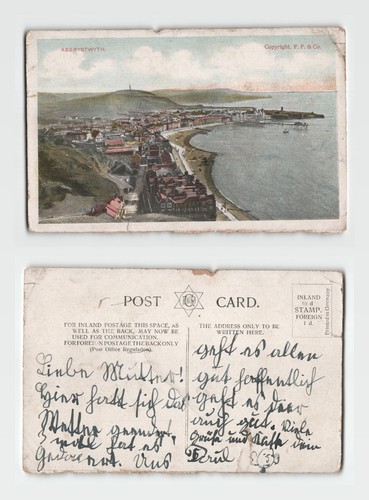 ABERYSTWYTH.
Copyright. P. P. & Co.
POST CARD.
FOR INLAND POSTAGE THIS SPACE, AS
WELL AS THE BACK, MAY NOW BE
USED FOR COMMUNICATION.
FOR FOREIGN POSTAGE THE BACK ONLY
(Post Office Regulation).
THE ADDRESS ONLY TO BE
WRITTEN HERE.
INLAND
½ d
STAMP.
FOREIGN
1 d.
Printed in Germany
Liebe Mutter!
Hier hatt sich das
Wetter geändert,
es.
Uns
geht es allen
gut hoffentlich
geht es dier
auch gut. Viele
Grüße und Küsse dein
Paul